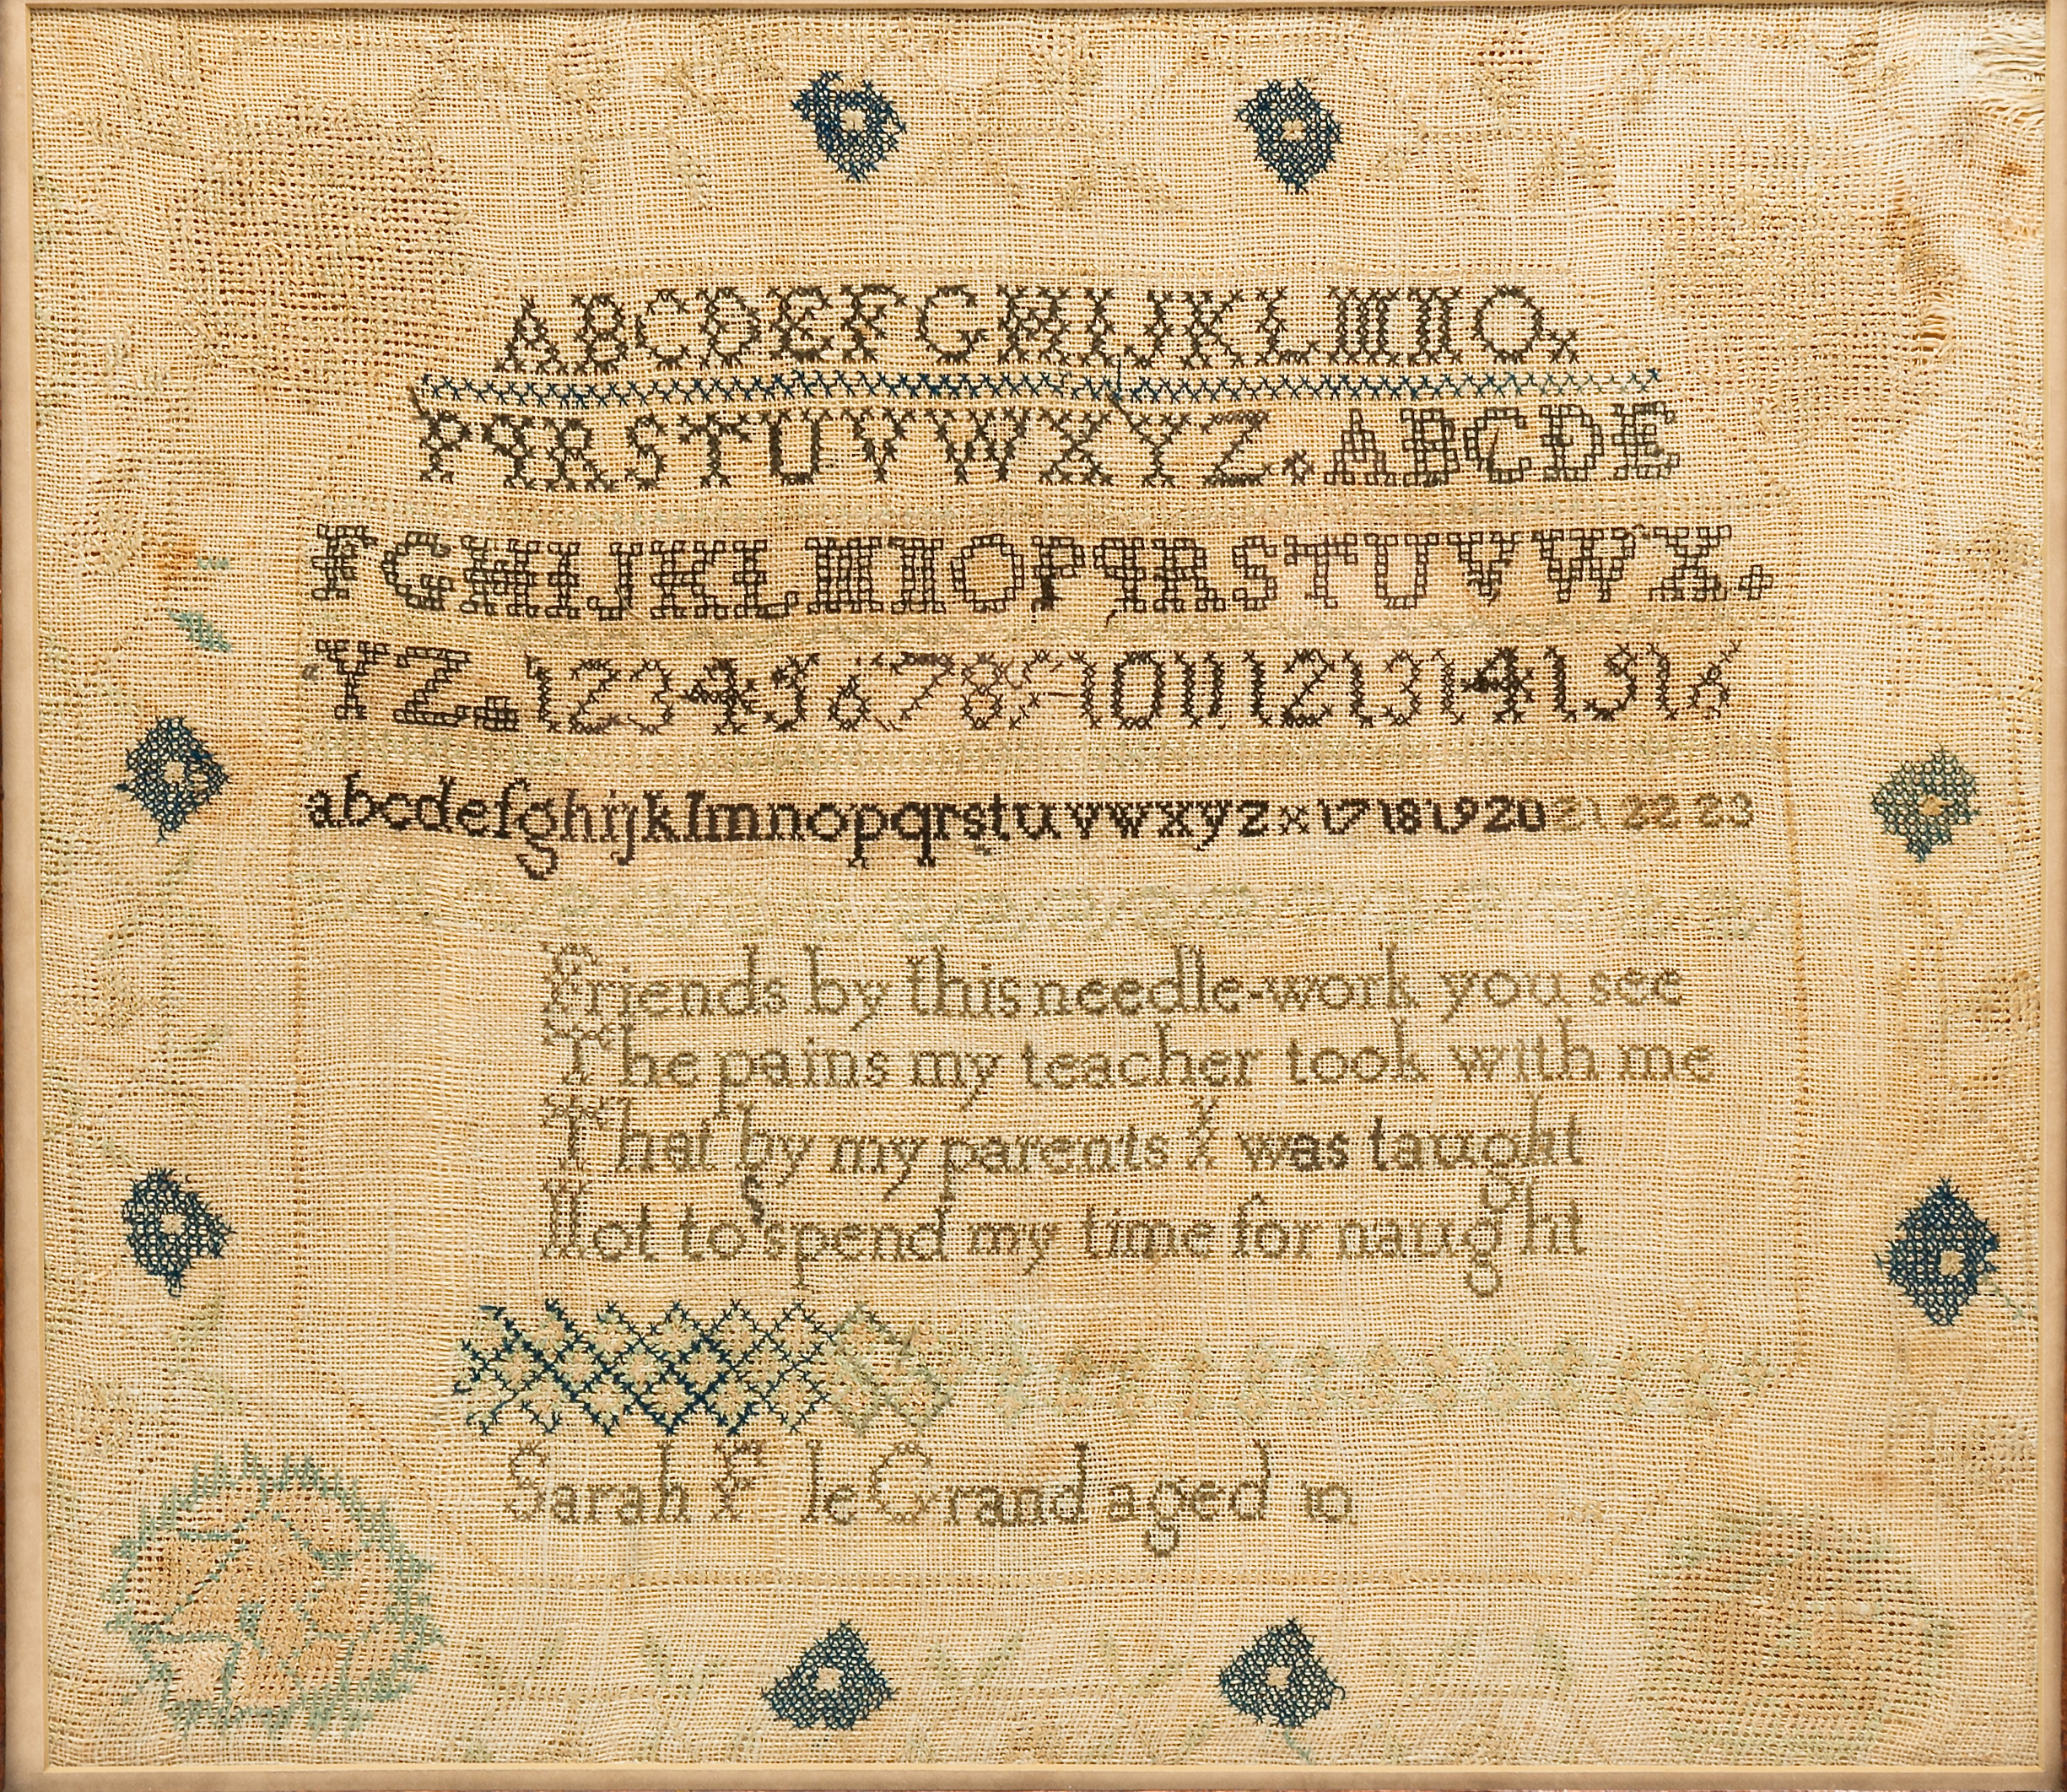 ABCDEFGHIJKLMNO.
PQRSTUVWXYZ.ABCDE
FGHIJKLMNOPQRSTUVWX.
YZ.12345678910111213141516
abcdefghijklmnopqrstuvwxyzx17181920212223
Friends by this needle-work you see
The pains my teacher took with me
That by my parents I was taught
Not to spend my time for naught
Sarah F le Grand aged 10